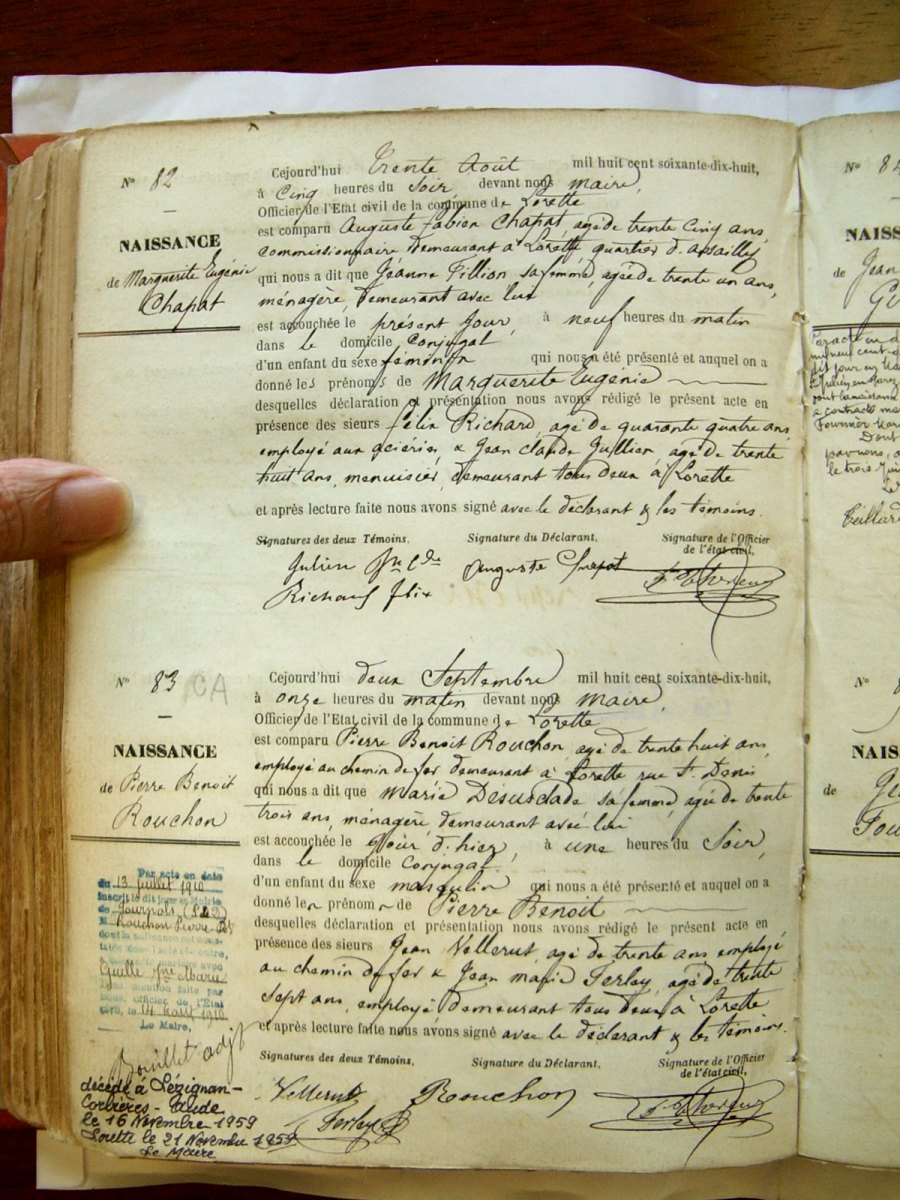 N° 82
NAISSANCE
de Marguerite Eugénie
Chapat
Cejourd'hui trente Août mil huit cent soixante-dix-huit,
à cinq heures du soir, devant nous Maire,
Officier de l'Etat civil de la commune de Lorette
est comparu Auguste fabien Chapat, agé de trente cinq ans,
commissionnaire demeurant à Lorette quartier d'assailly
qui nous a dit que Jeanne Fillion sa femme, agée de trente un ans,
ménagère, demeurant avec lui
est accouchée le présent jour, à neuf heures du matin
dans le domicile conjugal
d'un enfant du sexe féminin qui nous a été présenté et auquel on a
donné les prénoms de Marguerite Eugénie
desquelles déclaration et présentation nous avons rédigé le présent acte en
présence des sieurs félix Richard, agé de quarante quatre ans,
employé aux aciéries, & Jean claude Jullien, agé de trente
huit ans, menuisier, demeurant tous deux à Lorette
et après lecture faite nous avons signé avec le déclarant & les témoins.
Signatures des deux Témoins. Signature du Déclarant. Signature de l'Officier
de l'état civil,
Julien Jn Cde Auguste Chapat
Richard felix
N° 83
NAISSANCE
de Pierre Benoit
Rouchon
Cejourd'hui deux Septembre mil huit cent soixante-dix-huit,
à onze heures du matin devant nous Maire,
Officier de l'Etat civil de la commune de Lorette
est comparu Pierre Benoit Rouchon, agé de trente huit ans,
employé au chemin de fer demeurant à Lorette rue St Denis
qui nous a dit que Marie Desusclade sa femme, agée de trente
trois ans, ménagère, demeurant avec lui
est accouchée le jour d'hier, à une heures du soir,
dans le domicile conjugal
d'un enfant du sexe masculin qui nous a été présenté et auquel on a
donné le prénom de Pierre Benoit
desquelles déclaration et présentation nous avons rédigé le présent acte en
présence des sieurs Jean Vellerut, agé de trente ans employé
au chemin de fer & Jean marie Ferlay, agé de trente
sept ans, employé demeurant tous deux à Lorette
et après lecture faite nous avons signé avec le déclarant & les témoins.
Signatures des deux Témoins. Signature du Déclarant. Signature de l'Officier
de l'état civil,
Vellerut Rouchon
Ferlay
Par acte en date
du 13 juillet 1910
inscrit le dit jour en Mairie
de
M. Rouchon Pierre Bt
dont la naissance est cons-
tatée dans l'acte ci-contre,
a contracté mariage avec
Marie
Dont mention faite par
nous, officier de l'Etat
civil, le 14 août 1910
Le Maire,
adjt
décédé à Lézignan-
Corbières - Aude
le 16 Novembre 1959
Lorette le 21 Novembre 1959
Le Maire
N° 84
NAISS
de Jean
N°
NAIS
de